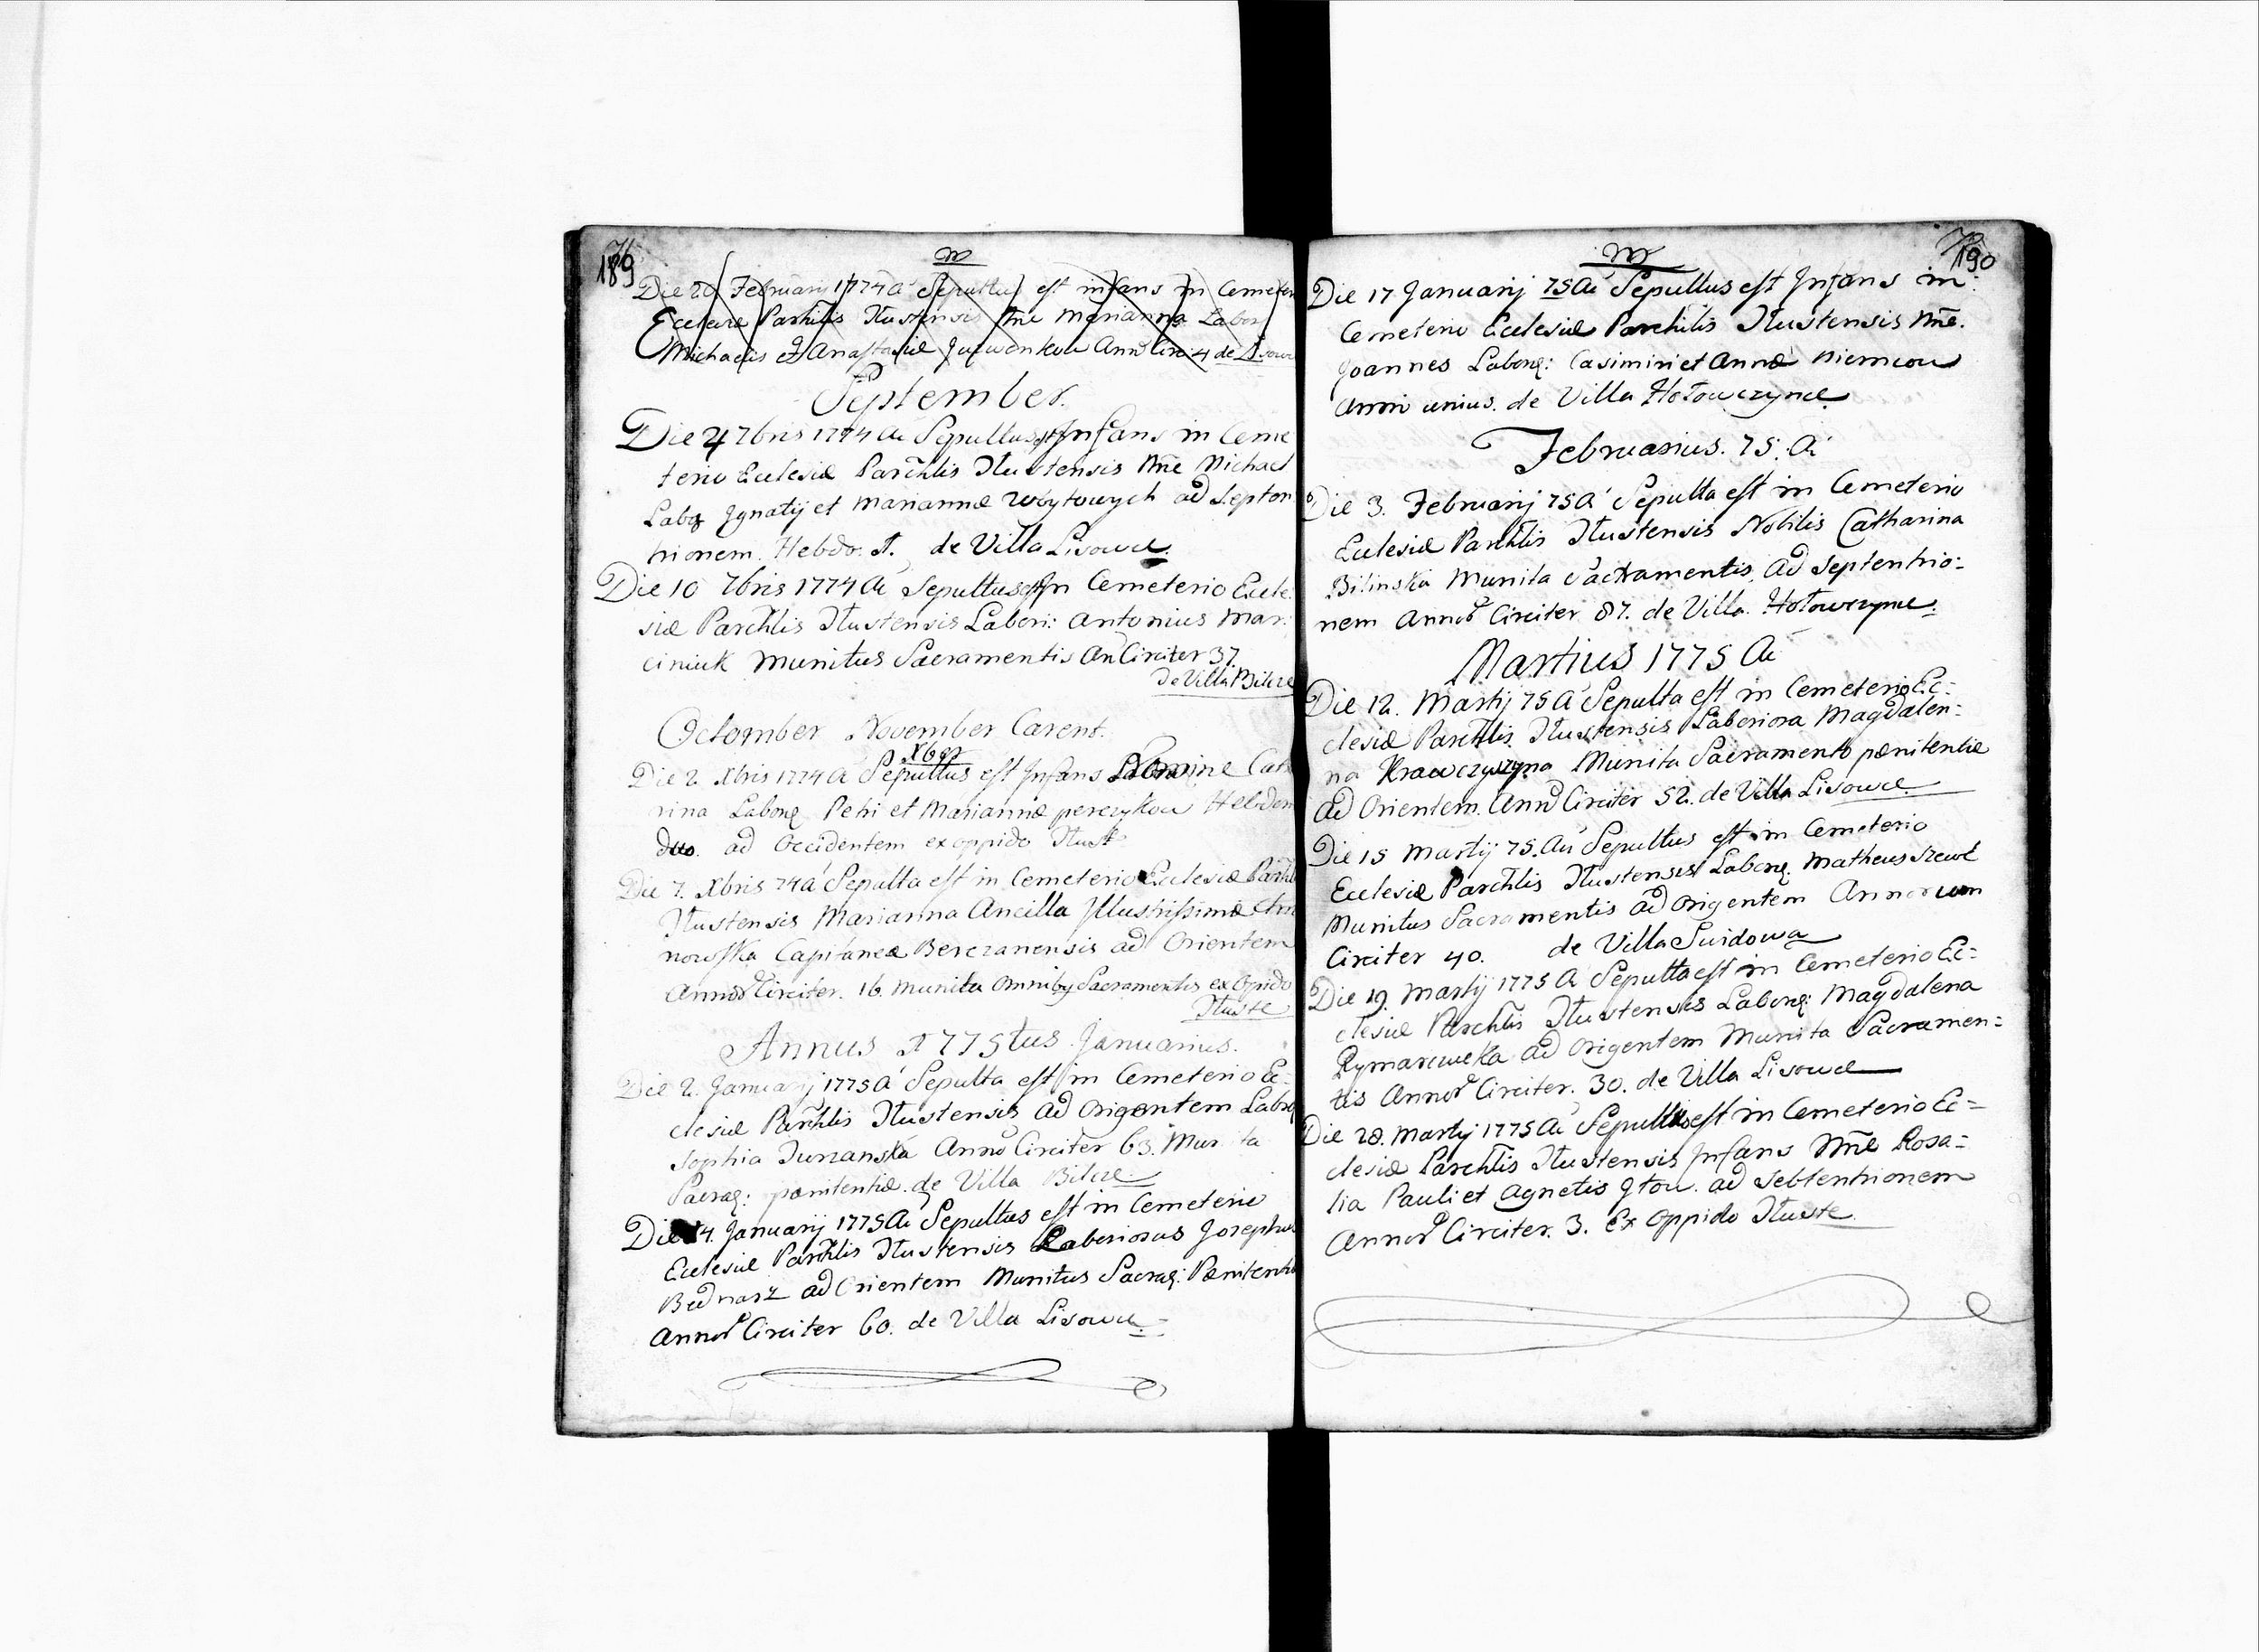 189
Die 20 Februarij 1774 A Sepultus est infans in Cemeter
Ecclesiæ Parchlis Tlustensis Nne Marianna Labor
Michaelis et Anastasiæ Ann Circi 4 de Lisow
September.
Die 4 7bris 1774 Au Sepultus est Infans in Ceme
terio Ecclesiæ Parchlis Tlustensis Nne Michael
Labor Ignatij et Mariannæ Woytowych ad Septen
trionem. Hebdo. 1. de Villa Lisowce.
Die 10 7bris 1774 Au Sepultus est In Cemeterio Eccle
siæ Parchlis Tlustensis Labori: Antonius Mar:
ciniuk Munitus Sacramentis An Circiter 37.
De Villa Bilcze
Octomber November Carent.
Xber
Die 2. Xbris 1774 A Sepultus est Infans Nomine Cath
rina Labor Petri et Mariannæ perczykow Hebdom
duo. ad Occidentem ex oppido Tlust
Die 7. Xbris 74 A Sepulta est in Cemeterio Ecclesiæ Parchl
Tlustensis Marianna Ancilla Jllustrissimæ
nowska Capitanea Berczanensis ad Orientem
Annor Circiter. 16. Munita Omnibus Sacramentis ex Opido
Tluste
Annus 1775tus Januarius.
Die 2. Januarij 1775 A Sepulta est in Cemeterio Ec:
clesiæ Parchlis Tlustensis ad Origentem Labor
Sophia Annor Circiter 63. Munita
Sacra: pœnitentiæ. de Villa Bilcze
Die 14. Januarij 1775 Au Sepultus est in Cemeterio
Ecclesiæ Parchlis Tlustensis Laboriosus Josephus
Bednarz ad Orientem Munitus Sacra: Pœnitenti
Annor Circiter 60. de Villa Lisowce
190
Die 17 Januarij 75 Au Sepultus est Infans in
Cemeterio Ecclesiæ Parchilis Tlustensis Nne.
Joannes Labor: Casimiri et Annæ Niemcow
Anni unius. de Villa Hołowczynce
Februarius. 75. A
Die 3. Februarij 75 A Sepulta est in Cemeterio
Ecclesiæ Parchlis Tlustensis Nobilis Catharina
Bilinska Munita Sacramentis Ad Septentrio:
nem Annor Circiter 87. de Villa. Hołowczynce.
Martius 1775 Au
Die 12. Martij 75 A Sepulta est in Cemeterio Ec:
clesiæ Parchlis. Tlustensis Laboriosa Magdalen:
na Krawczyszyna Munita Sacramento pœnitentiæ
ad Orientem. Annor Circiter 52. de Villa Lisowce.
Die 15 Martij 75. Au Sepultus est in Cemeterio
Ecclesiæ Parchlis Tlustensis Labor. Matheus Szewc
Munitus Sacramentis ad Origentem Annorum
Circiter 40. de Villa Swidowa
Die 19. Martij 1775 A Sepulta est in Cemeterio Ec:
clesiæ Parchlis Tlustensis Labor: Magdalena
Rymarowka ad Origentem Munita Sacramen:
tis Annor Circiter. 30. de Villa Lisowce
Die 28. Martij 1775 Au Sepulta est in Cemeterio Ec:
clesiæ Parchlis Tlustensis Infans Nne Rosa:
lia Pauli et Agnetis ad Sebtentrionem
Annor Circiter. 3. Ex Oppido Tluste